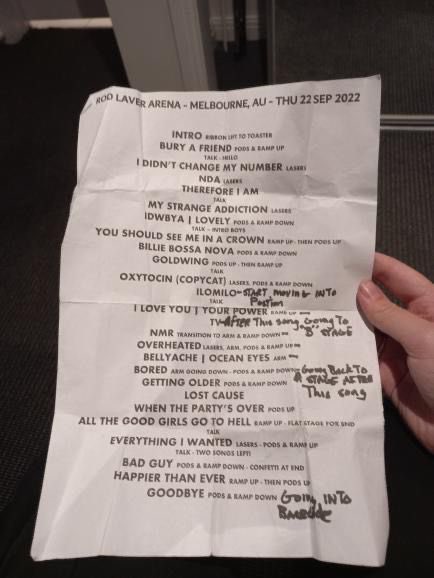 ROD LAVER ARENA - MELBOURNE, AU - THU 22 SEP 2022
INTRO RIBBON LIFT TO TOASTER
BURY A FRIEND PODS & RAMP UP
TALK - HELLO
I DIDN'T CHANGE MY NUMBER LASERS
NDA LASERS
THEREFORE I AM
TALK
MY STRANGE ADDICTION LASERS
IDWBYA | LOVELY PODS & RAMP DOWN
TALK - INTRO BOYS
YOU SHOULD SEE ME IN A CROWN RAMP UP - THEN PODS UP
BILLIE BOSSA NOVA PODS & RAMP DOWN
GOLDWING PODS UP - THEN RAMP UP
TALK
OXYTOCIN (COPYCAT) LASERS, PODS & RAMP DOWN
ILOMILO - START Moving INTO
Position
TALK
I LOVE YOU | YOUR POWER RAMP UP
TV - AFTER This song Going To
"B" STAGE
NMR TRANSITION TO ARM & RAMP DOWN
OVERHEATED LASERS, ARM, PODS & RAMP UP
BELLYACHE | OCEAN EYES ARM
BORED ARM GOING DOWN - PODS & RAMP DOWN - Going Back To
GETTING OLDER PODS & RAMP DOWN A STAGE AFTER
LOST CAUSE This song
WHEN THE PARTY'S OVER PODS UP
ALL THE GOOD GIRLS GO TO HELL RAMP UP - FLAT STAGE FOR END
TALK
EVERYTHING I WANTED LASERS - PODS & RAMP UP
TALK - TWO SONGS LEFT!
BAD GUY PODS & RAMP DOWN - CONFETTI AT END
HAPPIER THAN EVER RAMP UP - THEN PODS UP
GOODBYE PODS & RAMP DOWN Going INTO